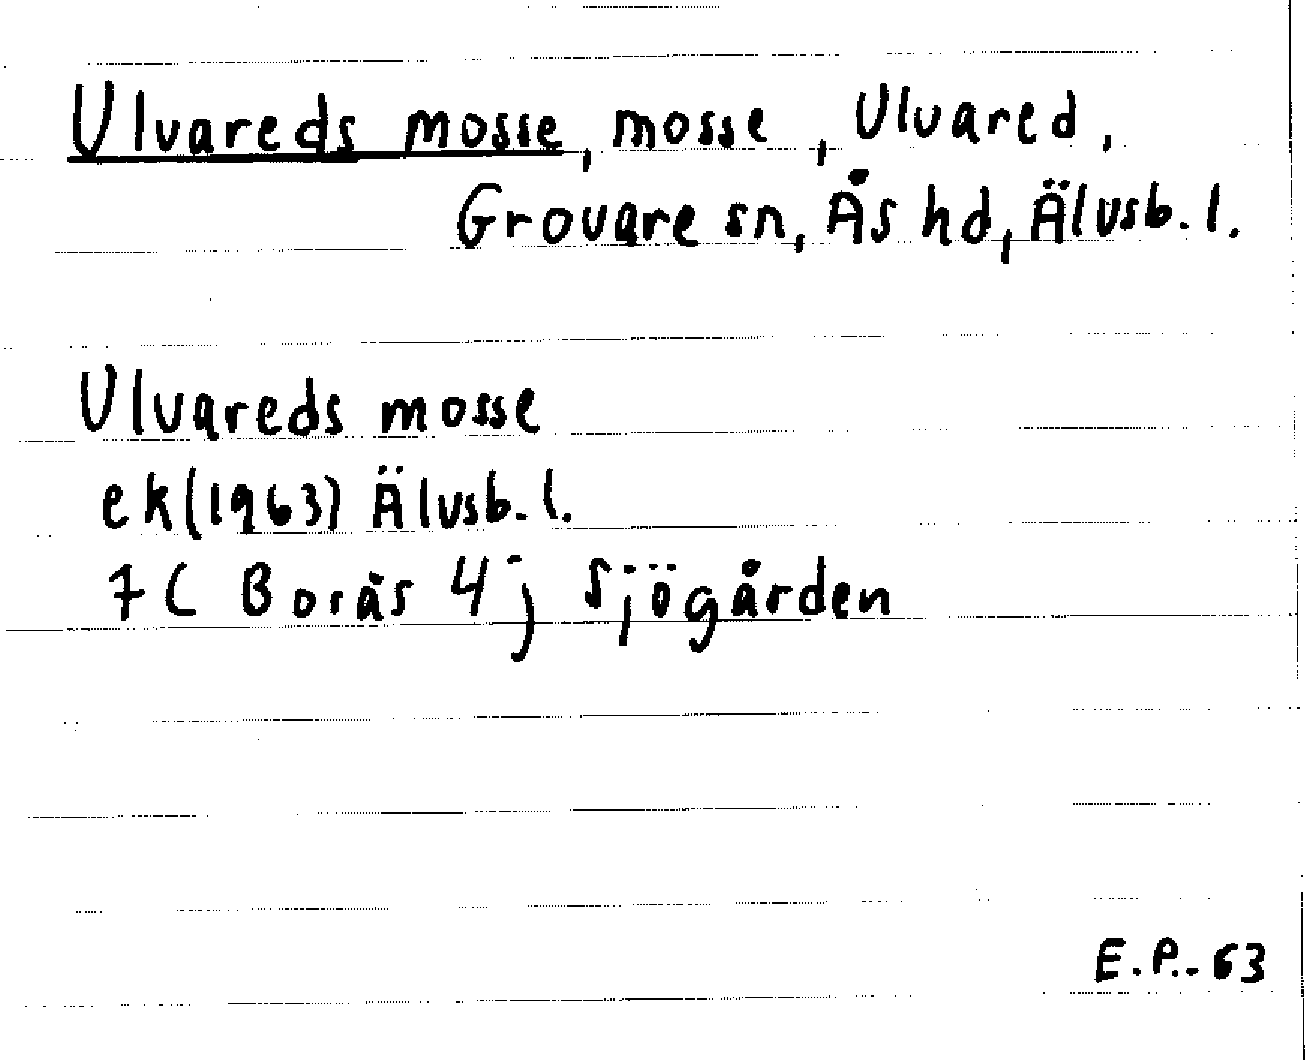 Ulvareds mosse, mosse, Ulvared,
Grovare sn, Ås hd, Älvsb. l.
Ulvareds mosse
ek (1963) Älvsb. l.
7C Borås 4j Sjögården
E.P.-63